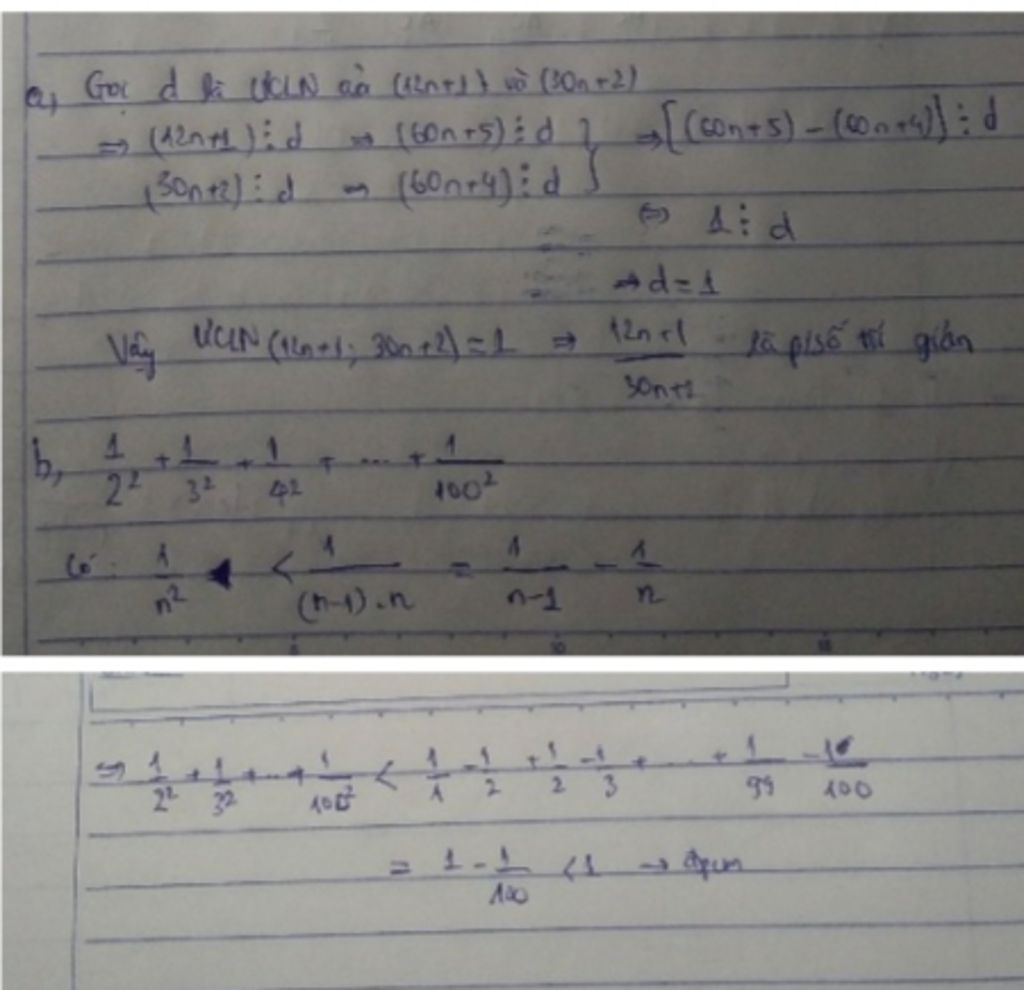 a, Gọi d là ƯCLN của (12n+1) và (30n+2)
⇒ (12n+1) ⋮ d ⇒ (60n+5) ⋮ d } ⇒ [(60n+5) – (60n+4)] ⋮ d
(30n+2) ⋮ d ⇒ (60n+4) ⋮ d
⇔ 1 ⋮ d
⇒ d = 1
Vậy ƯCLN (12n+1; 30n+2) = 1 ⇒ (12n+1)/(30n+2) là p/số tối giản
b, 1/2² + 1/3² + 1/4² + ... + 1/100²
Có: 1/n² < 1/((n-1).n) = 1/(n-1) – 1/n
⇒ 1/2² + 1/3² + ... + 1/100² < 1/1 – 1/2 + 1/2 – 1/3 + ... + 1/99 – 1/100
= 1 – 1/100 < 1 → đpcm